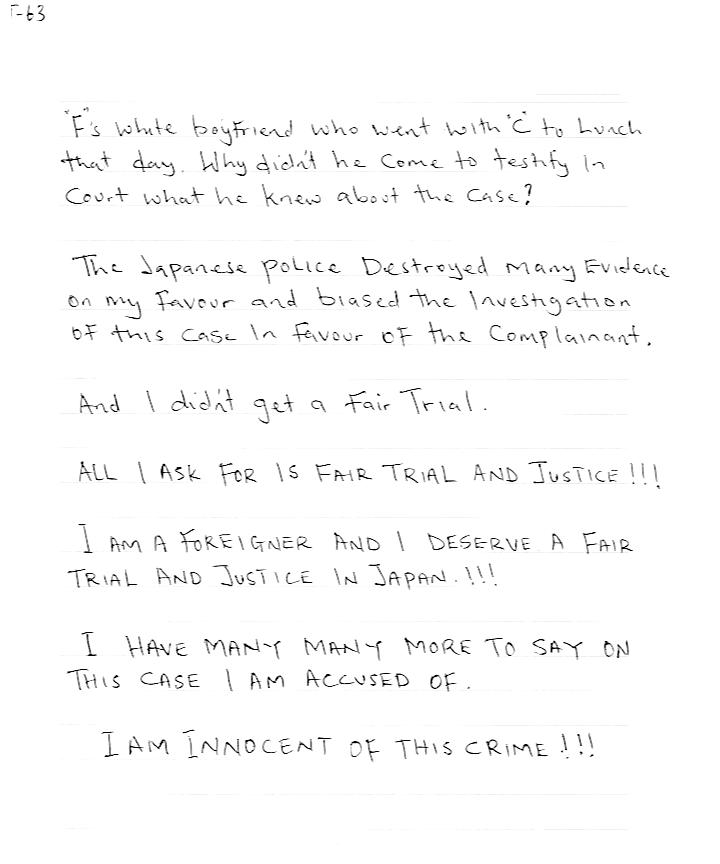 T-63
"F"s white boyfriend who went with "C" to Lunch
that day. Why didn't he come to testify in
Court what he knew about the case?
The Japanese police Destroyed many Evidence
on my favour and biased the investigation
of this case in favour of the Complainant.
And I didn't get a Fair Trial.
ALL I ASK FOR IS FAIR TRIAL AND JUSTICE!!!
I AM A FOREIGNER AND I DESERVE A FAIR
TRIAL AND JUSTICE IN JAPAN.!!!
I HAVE MANY MANY MORE TO SAY ON
THIS CASE I AM ACCUSED OF.
I AM INNOCENT OF THIS CRIME!!!